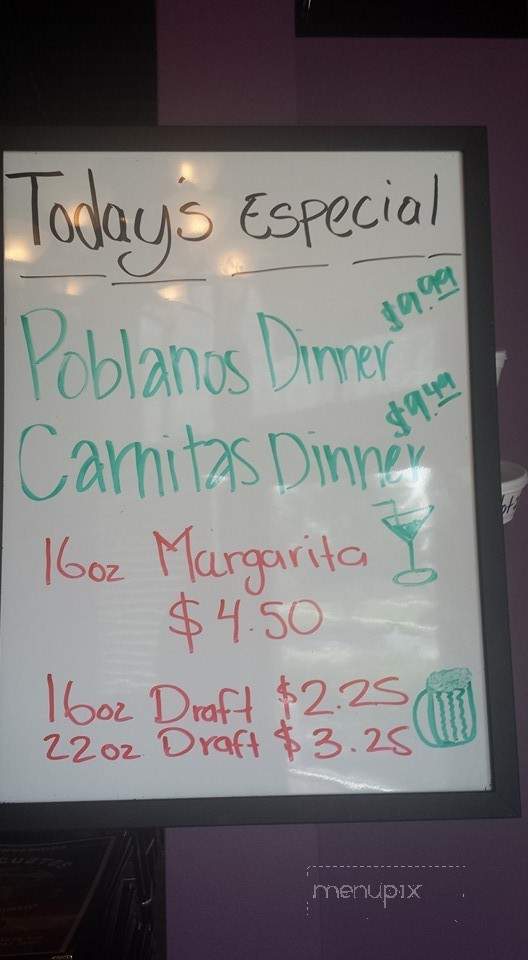 Today's Especial
$9.99
Poblanos Dinner
$9.49
Carnitas Dinner
16oz Margarita
$4.50
16oz Draft $2.25
22oz Draft $3.25
menupix